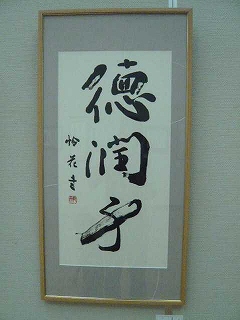 德潤身
怡花書